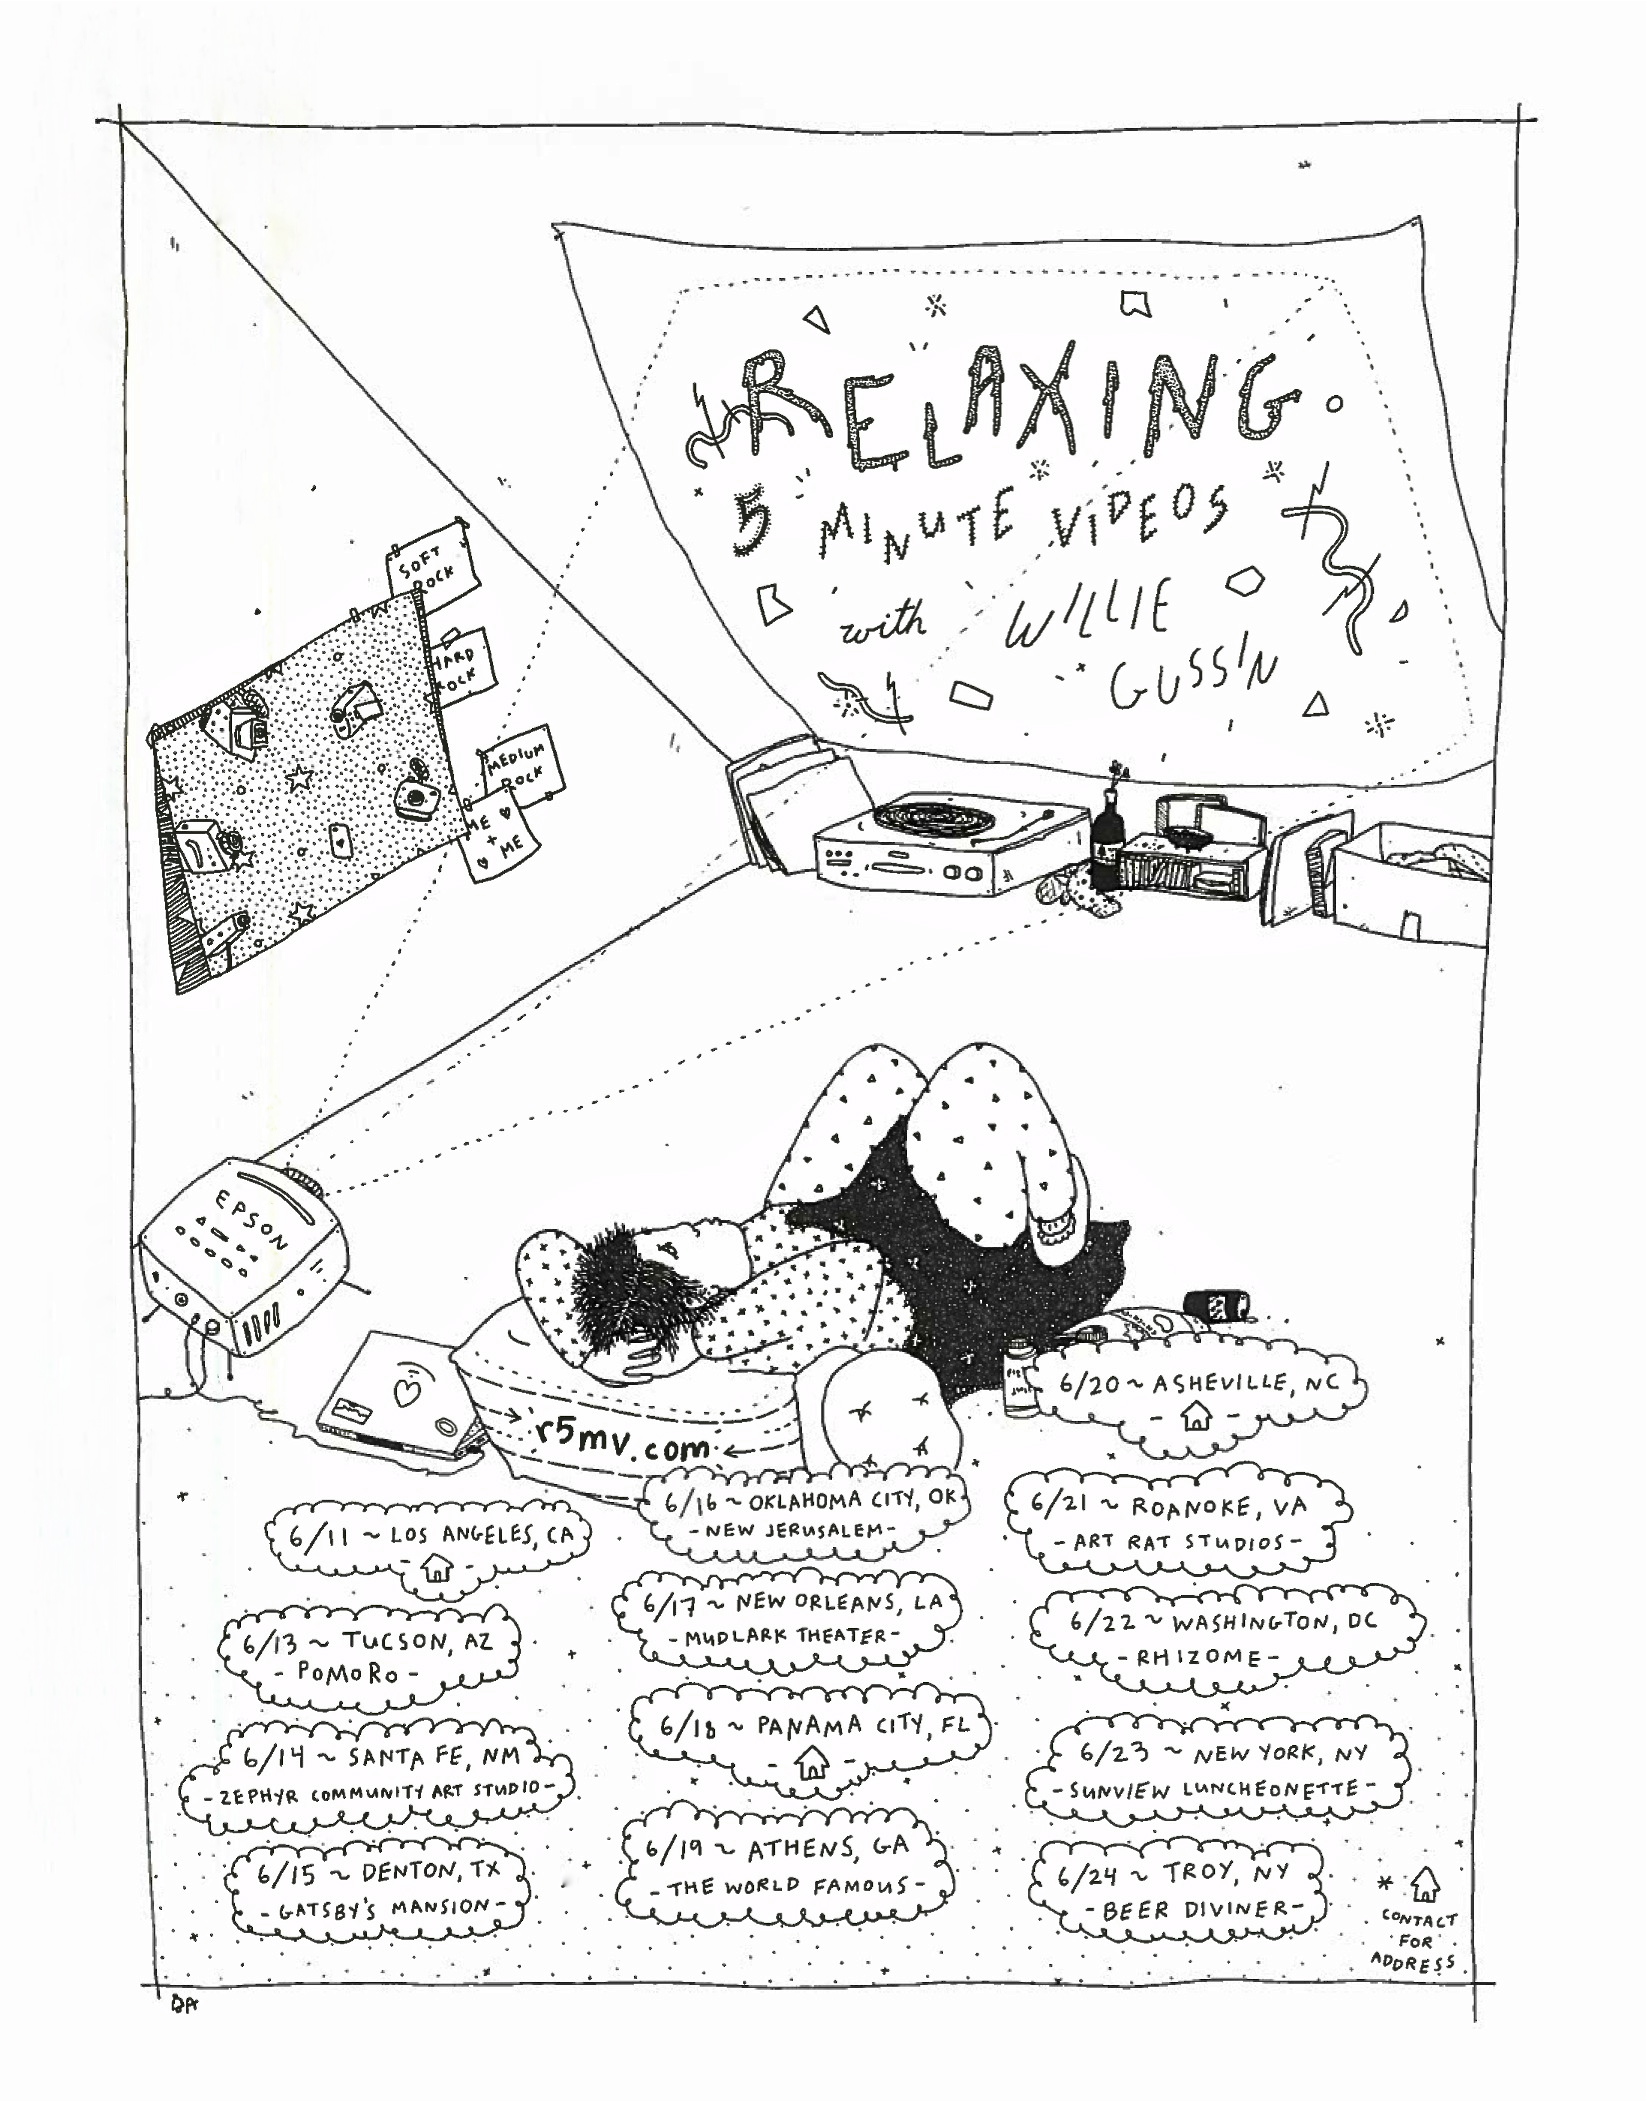 RELAXING
5 MINUTE VIDEOS
with WILLIE
GUSSIN
SOFT
ROCK
HARD
ROCK
MEDIUM
ROCK
ME ♥
+
♥ ME
EPSON
r5mv.com
6/11 ~ LOS ANGELES, CA
6/13 ~ TUCSON, AZ
- POMORO -
6/14 ~ SANTA FE, NM
- ZEPHYR COMMUNITY ART STUDIO -
6/15 ~ DENTON, TX
- GATSBY'S MANSION -
6/16 ~ OKLAHOMA CITY, OK
- NEW JERUSALEM -
6/17 ~ NEW ORLEANS, LA
- MUDLARK THEATER -
6/18 ~ PANAMA CITY, FL
6/19 ~ ATHENS, GA
- THE WORLD FAMOUS -
6/20 ~ ASHEVILLE, NC
6/21 ~ ROANOKE, VA
- ART RAT STUDIOS -
6/22 ~ WASHINGTON, DC
- RHIZOME -
6/23 ~ NEW YORK, NY
- SUNVIEW LUNCHEONETTE -
6/24 ~ TROY, NY
- BEER DIVINER -
*
CONTACT
FOR
ADDRESS